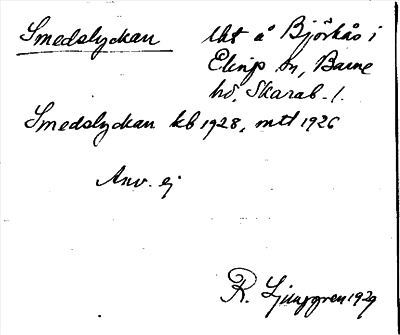 Smedslyckan
Uht å Björkås i
Elings sn, Barne
hd, Skarab. l.
Smedslyckan kb 1928, mtl 1926
Anv. ej
R. Ljunggren 1929